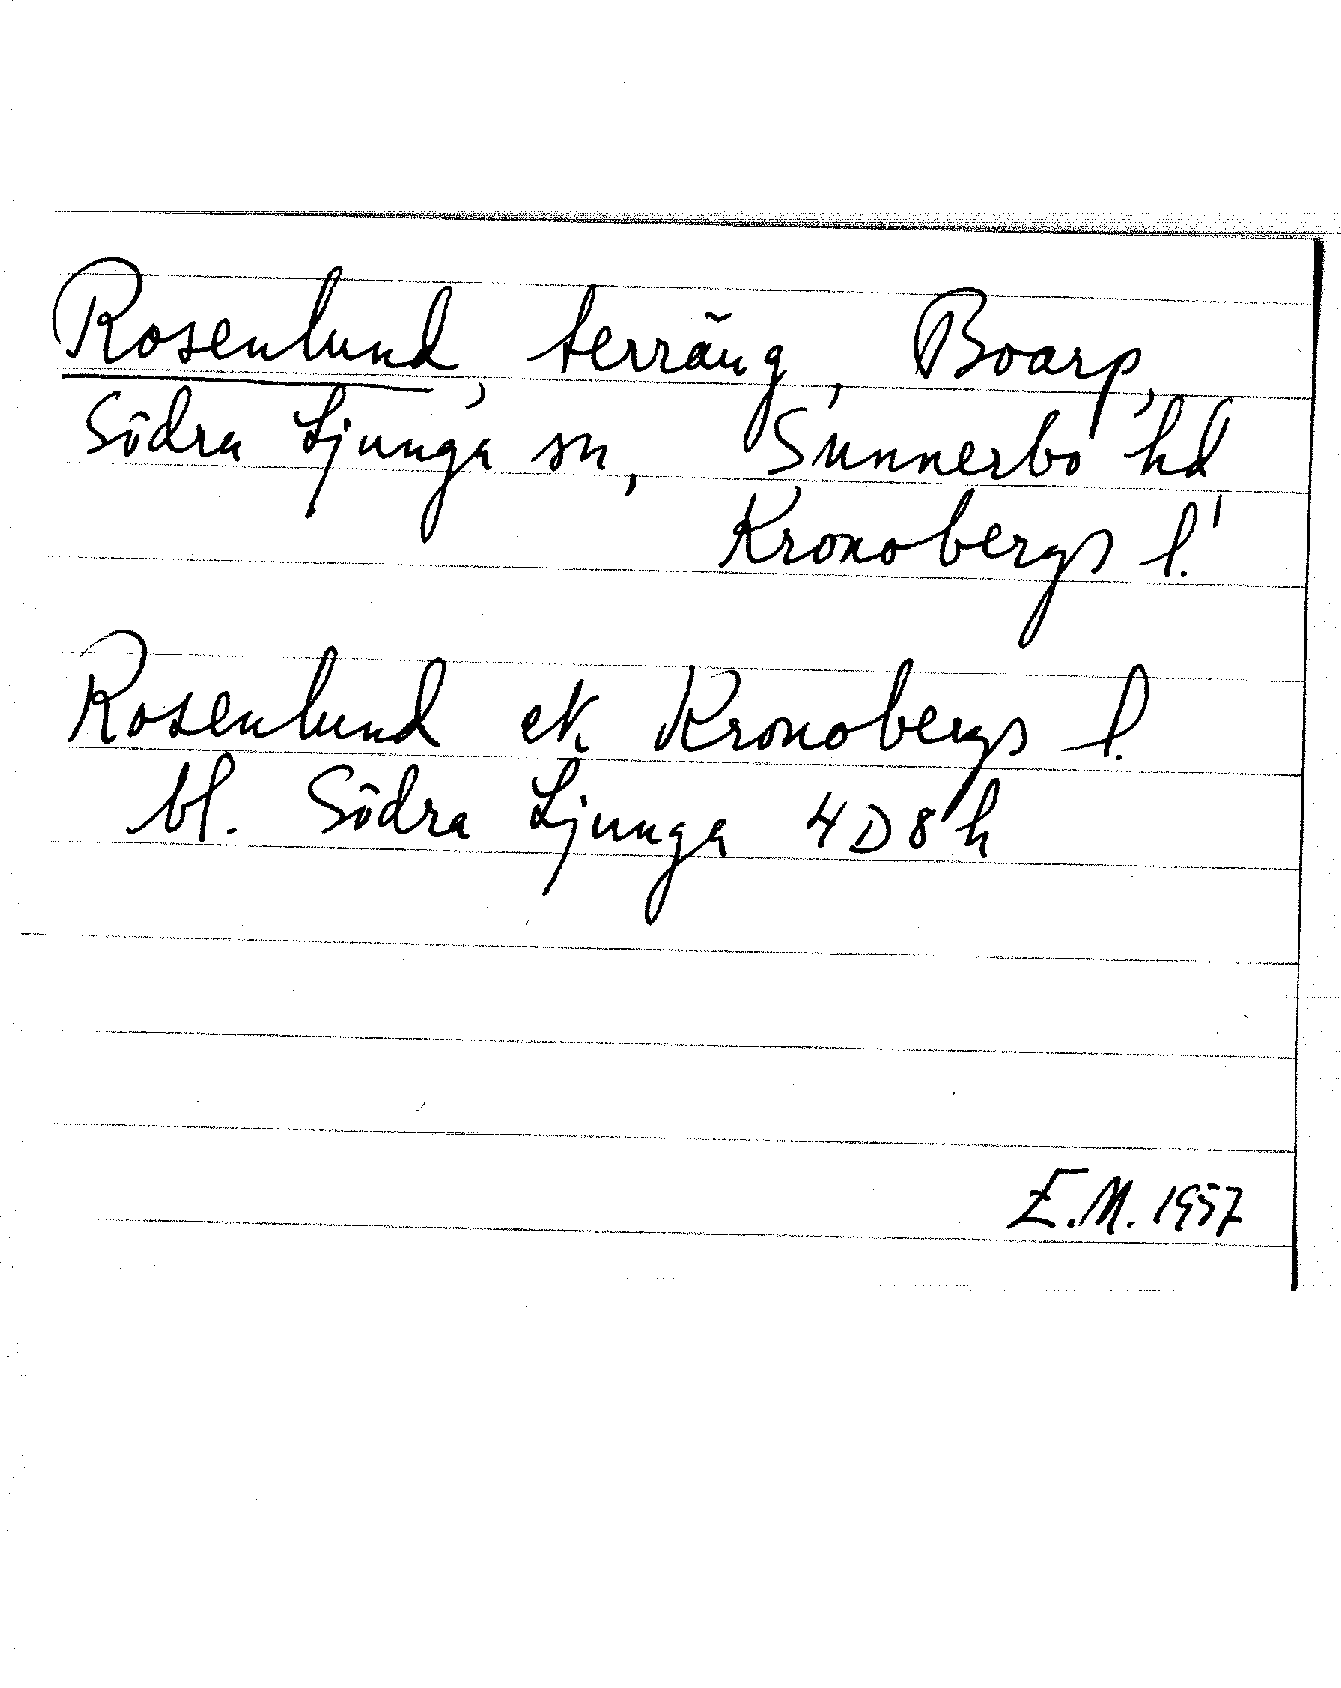 Rosenlund, terräng, Boarp,
Södra Ljunga sn, Sunnerbo hd,
Kronobergs l.
Rosenlund ek Kronobergs l.
bl. Södra Ljunga 4D8h
E.M. 1957